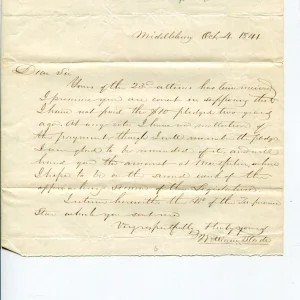 Middlebury Oct. 4. 1841.
Dear Sir
Yours of the 23d ultimo has been received
I presume you are correct in supposing that
I have not paid the $10 pledged two years
ago at any rate I have no recollection of
the payment though I well the pledge
I am glad to be reminded of it, and will
hand you the amount at Montpelier, where
I hope to be on the second week of the
approaching session of the Legislature.
I return herewith the No of the
Star which you sent me
Very respectfully yours
William Slade